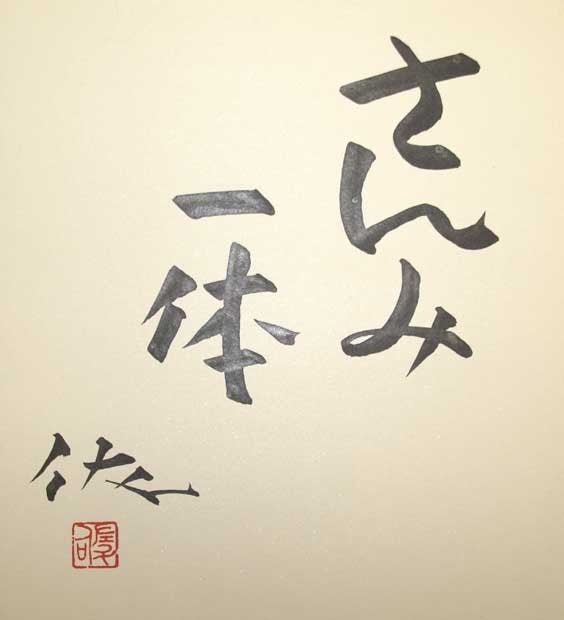 さんみ
一体